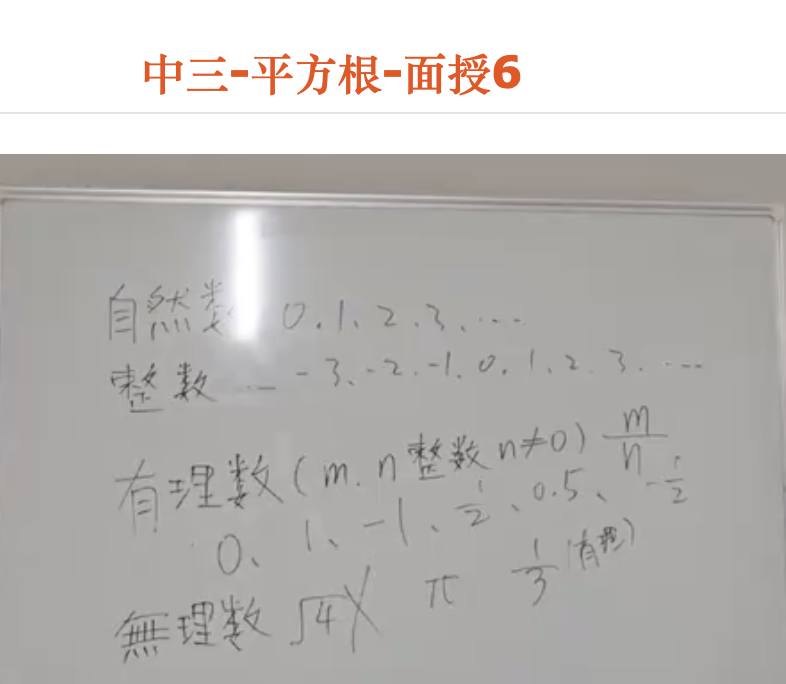 中三-平方根-面授6
自然数 0.1、2.3、...
整数 ... -3、-2.-1.0.1、2.3....
有理数(m.n整数n≠0) m/n
0、1、-1、1/2、0.5、-1/2
無理数 √4 π 1/3 (有理)